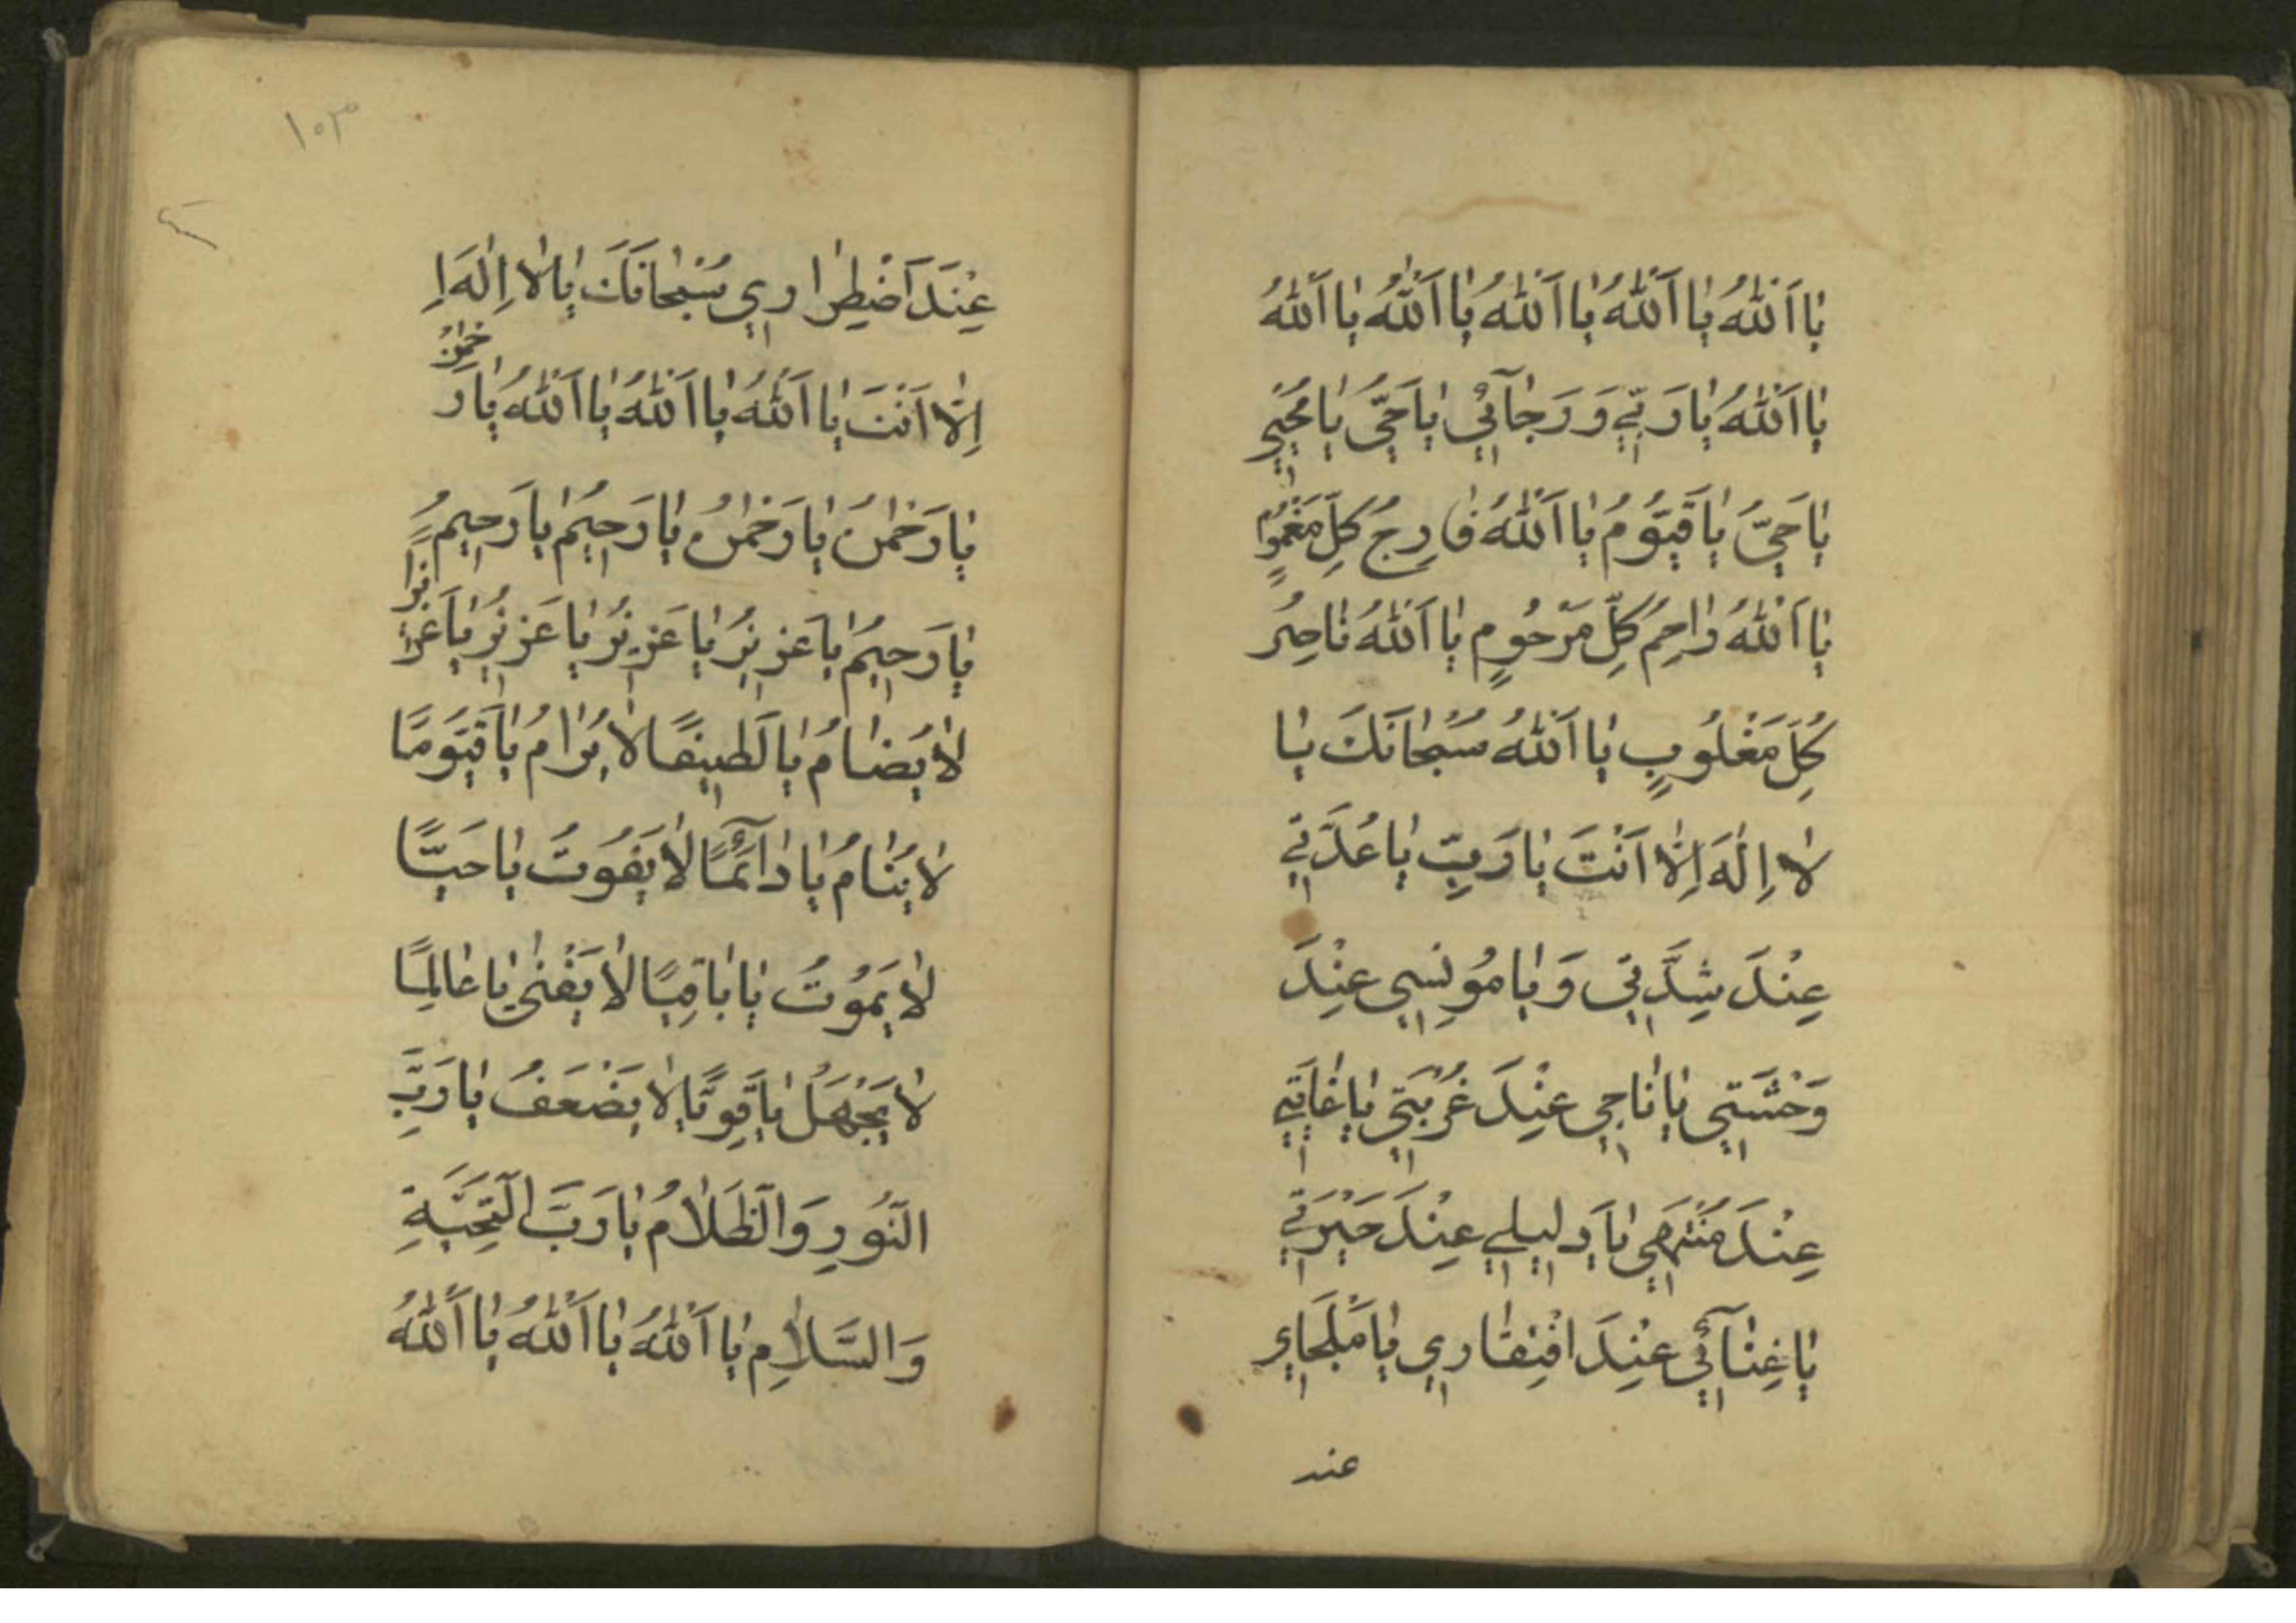 يٰا اَللّٰهُ يٰا اَللّٰهُ يٰا اَللّٰهُ يٰا اَللّٰهُ يٰا اَللّٰهُ
يٰا اَللّٰهُ يٰا رَبّيٖ وَ رَجٰآئيٖ يٰا حَيُّ يٰا مُحْييٖ
يٰا حَيُّ يٰا قَيُّومُ يٰا اَللّٰهُ فٰارِجُ كُلِّ مَغْمُومٍ
يٰا اَللّٰهُ رٰاحِمُ كُلِّ مَرْحُومٍ يٰا اَللّٰهُ نٰاصِرُ
كُلِّ مَغْلُوبٍ يٰا اَللّٰهُ سُبْحٰانَكَ يٰا
لٰا اِلٰهَ اِلّٰا اَنْتَ يٰا رَبِّ يٰا عُدَّتيٖ
عِنْدَ شِدَّتيٖ وَ يٰا مُونِسيٖ عِنْدَ
وَحْشَتيٖ يٰا نٰاجيٖ عِنْدَ غُرْبَتيٖ يٰا غٰايَتيٖ
عِنْدَ مُنْتَهَيٖ يٰا دَليٖليٖ عِنْدَ حَيْرَتيٖ
يٰا غِنٰآئيٖ عِنْدَ افْتِقٰاريٖ يٰا مَلْجَاءيٖ
عند
١٠٣
عِنْدَ اَضْطِرٰاريٖ سُبْحٰانَكَ يٰا لٰا اِلٰهَ اِ
اِلّٰا اَنْتَ يٰا اَللّٰهُ يٰا اَللّٰهُ يٰا اَللّٰهُ يٰا رَحْمٰنُ
يٰا رَحْمٰنُ يٰا رَحْمٰنُ يٰا رَحيٖمُ يٰا رَحيٖمُ
يٰا رَحيٖمُ يٰا عَزيٖزُ يٰا عَزيٖزُ يٰا عَزيٖزُ يٰا عَزيٖزًا
لٰا يُضٰامُ يٰا لَطيٖفًا لٰا يُرٰامُ يٰا قَيُّومًا
لٰا يَنٰامُ يٰا دٰآئِمًا لٰا يَفُوتُ يٰا حَيًّا
لٰا يَمُوتُ يٰا بٰاقِيًا لٰا يَفْنٰى يٰا عٰالِمًا
لٰا يَجْهَلُ يٰا قَوِيًّا لٰا يَضْعَفُ يٰا رَبَّ
النُّورِ وَ الظَّلٰامُ يٰا رَبَّ التَّحِيَّةِ
وَ السَّلٰامِ يٰا اَللّٰهُ يٰا اَللّٰهُ يٰا اَللّٰهُ